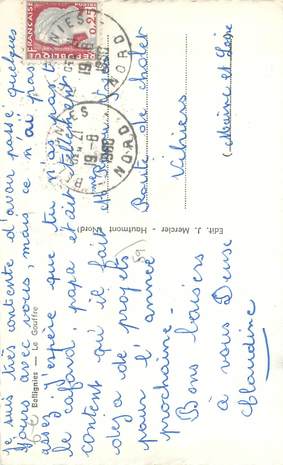 Je suis très contente d'avoir passé quelques
jours avec vous, mais ce n'ai pas
assez j'espère que tu n'as pas
le cafard, papa était tellement
content qu'il fait
déjà de projets
pour l'année
prochaine -
Bons baisers
à vous Deux
Claudine
Route de Cholet
Vihiers
(Maine et Loire
59)
Bellignies — Le Gouffre
Edit. J. Mercier - Hautmont (Nord)
REPUBLIQUE
FRANÇAISE
0,25
POSTES
19-8
NORD
17
19-8
NORD